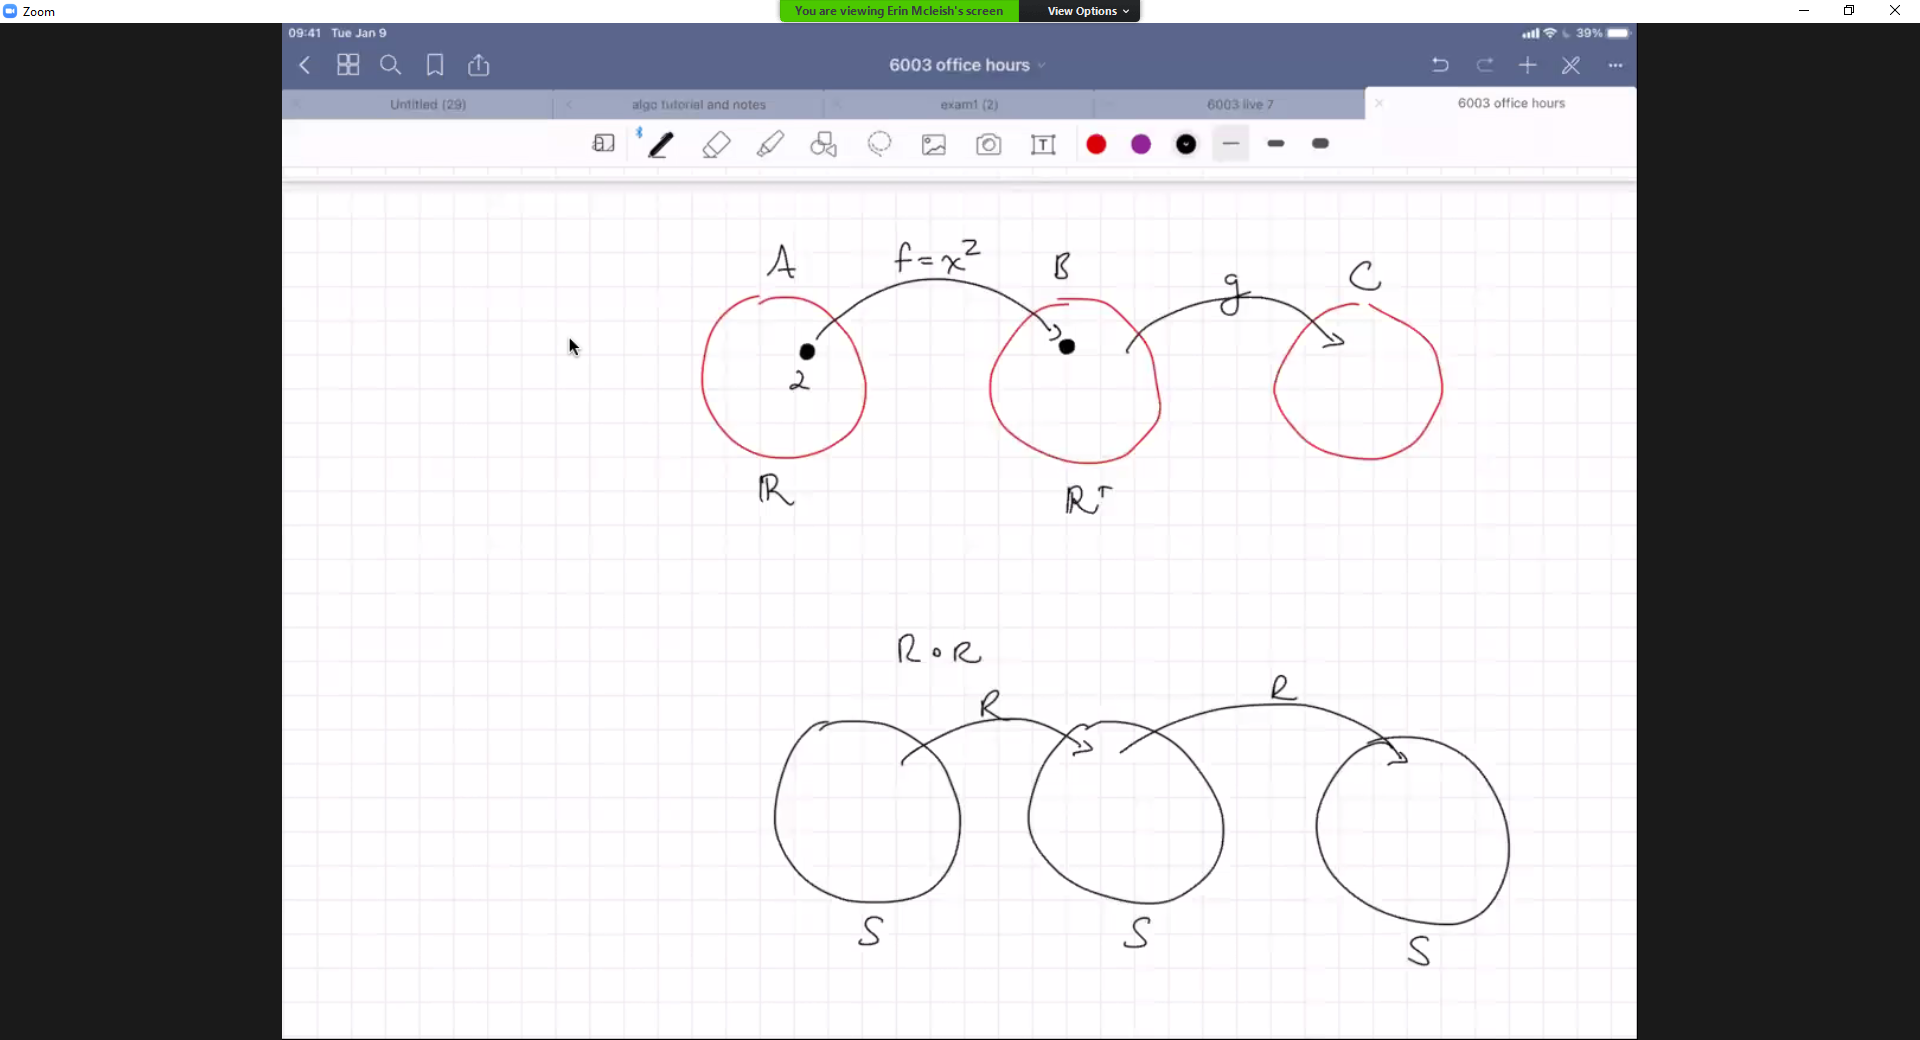 Zoom
You are viewing Erin Mcleish's screen View Options
09:41 Tue Jan 9 39%
6003 office hours
Untitled (29) algo tutorial and notes exam1 (2) 6003 live 7 6003 office hours
T
A f=x² B g C
2
ℝ ℝ⁺
R∘R
R R
S S S